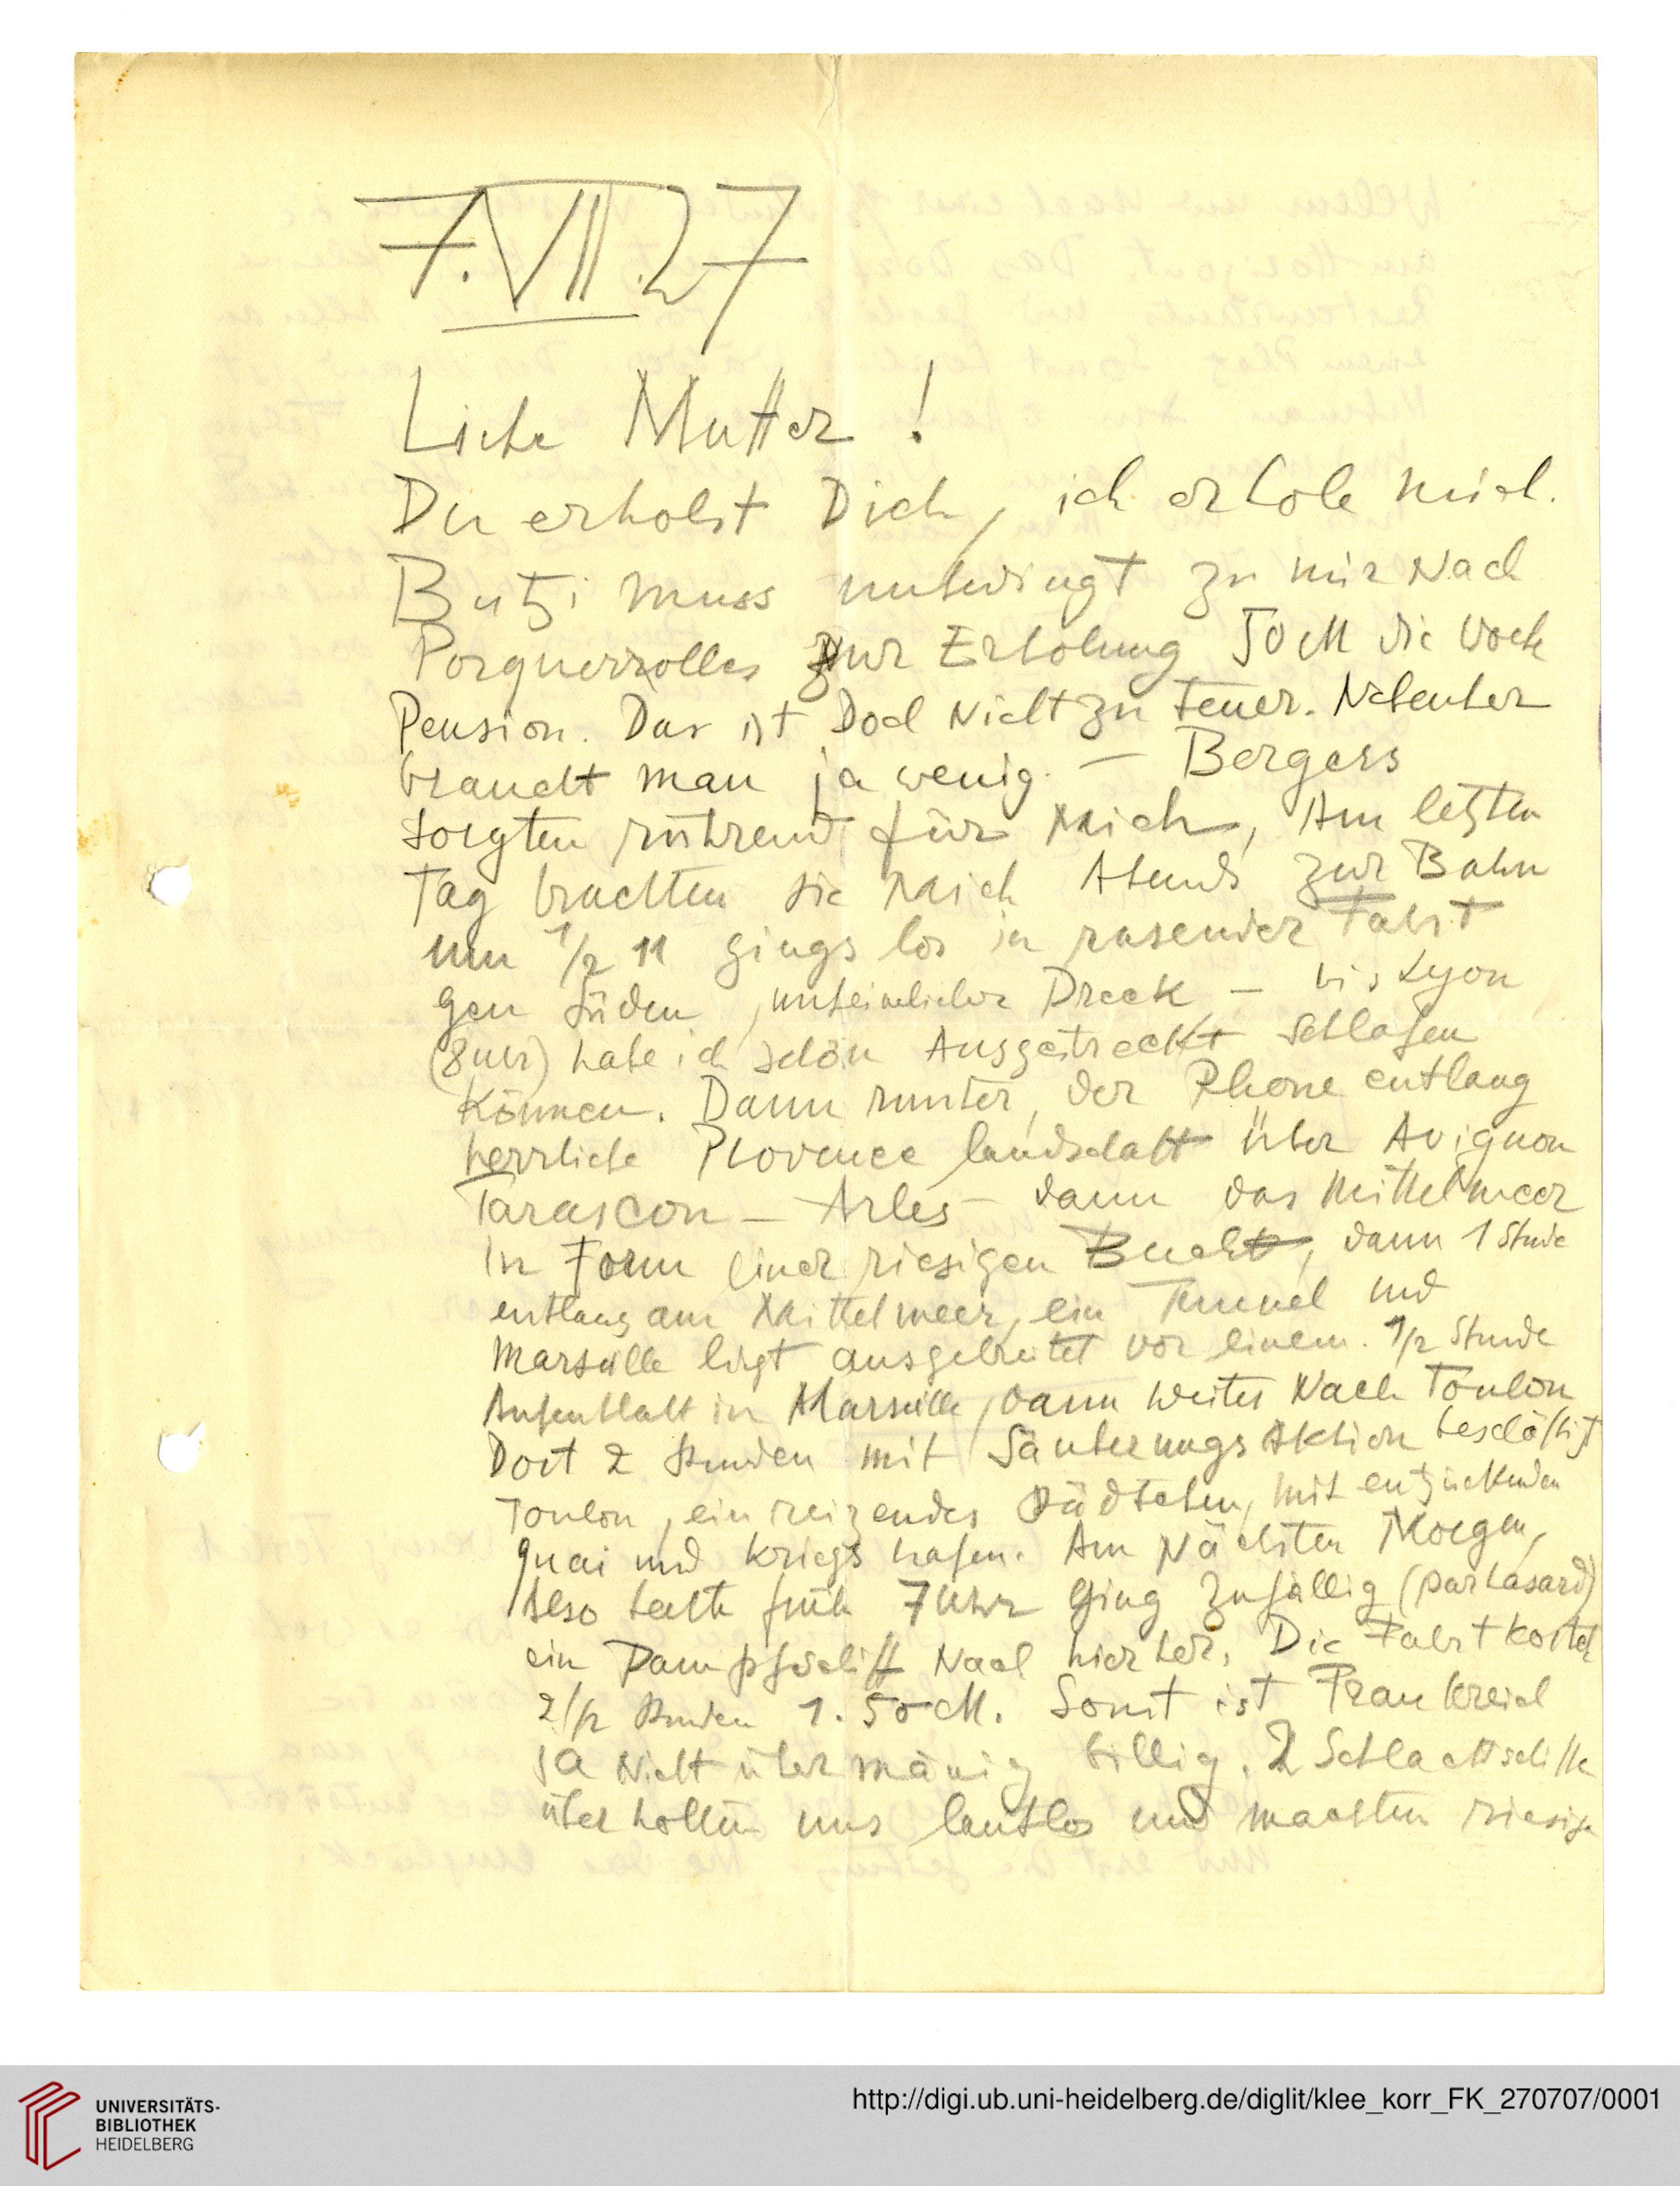 7.VII.27
Liebe Mutter!
Du erholst Dich, ich erhole mich.
Butzi muss unbedingt zu mir nach
Porquerolles zur Erholung 50 M die Woche
Pension. Das ist doch nicht zu teuer. Nebenher
braucht man ja wenig. – Bergers
sorgten rührend für mich, Am letzten
Tag brachten sie mich Abends zur Bahn
um 1/2 11 gings los in rasender Fahrt
gen Süden, unheimlicher Dreck – bis Lyon
(8 Uhr) habe ich schön Ausgestreckt schlafen
können. Dann runter, der Rhone entlang
herrliche Provence landschaft über Avignon
Tarascon – Arles – dann das Mittelmeer
in Form einer riesigen Bucht, dann 1 Stunde
entlang am Mittelmeer, ein Tunnel und
Marseille liegt ausgebreitet vor einem. 1/2 Stunde
Aufenthalt in Marseille, dann weiter nach Toulon
Dort 2 Stunden mit Säuberungs Aktion beschäftigt
Toulon, ein reizendes Städtchen, mit entzückenden
Quai und Kriegshafen. Am nächsten Morgen,
Also heute früh 7 Uhr ging zufällig (par hasard)
ein Dampfschiff nach hierher. Die Fahrt kostet
2 1/2 Stunden 1.50 M. Sonst ist Frankreich
ja nicht über mäßig billig. 2 Schlachtschiffe
überholten uns lautlos und machten riesige
UNIVERSITÄTS-
BIBLIOTHEK
HEIDELBERG
http://digi.ub.uni-heidelberg.de/diglit/klee_korr_FK_270707/0001